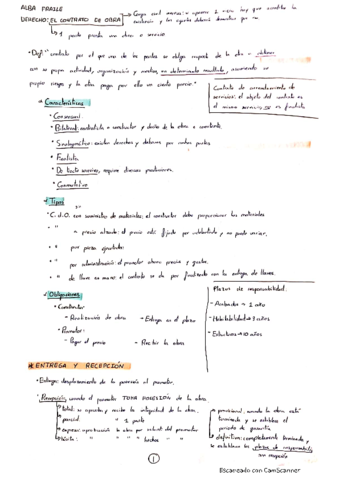 ALBA FRAILE
DERECHO: EL CONTRATO DE OBRA
1 parte presta una obra o servicio
"Defi" contrato por el que una de las partes se obliga respecto de la otra a obtener
con su propia actividad, organización y medios, un determinado resultado, asumiendo su
propio riesgo y la otra paga por ello un cierto precio."
Contrato de arrendamiento de
servicios: el objeto del contrato es
el mismo servicio
Características
• Consensual
• Bilateral: contratista o constructor y dueño de la obra o comitente
• Sinalagmático: existen derechos y deberes por ambas partes
• De tracto sucesivo, requiere diversas prestaciones.
• Conmutativo
Tipos
• C. d. O. con suministro de materiales: el constructor debe proporcionar los materiales
• " a precio alzado: el precio está fijado por adelantado y no puede variar.
• " por piezas ejecutadas
• " por administración: el promotor abona precios y gastos.
• " de llave en mano: el contrato se da por finalizado con la entrega de llaves.
Obligaciones
• Constructor:
- Realización de obra - Entrega en el plazo
• Promotor:
- Pagar el precio - Recibir la obra
Plazos de responsabilidad.
- Acabados → 1 año
- Habitabilidad → 3 años
- Estructura → 10 años
* ENTREGA Y RECEPCIÓN
• Entrega: desplazamiento de la posesión al promotor.
• Recepción: cuando el promotor TOMA POSESIÓN de la obra.
total: se aprueba y recibe la integridad de la obra.
parcial " 1 parte
expresa: aprobación la obra por voluntad del promotor
tácita: " " " " hechos "
provisional: cuando la obra está
terminada y se establece el
periodo de garantía
definitiva: completamente terminada y
se establecen los plazos de responsabilidad,
1
Escaneado con CamScanner